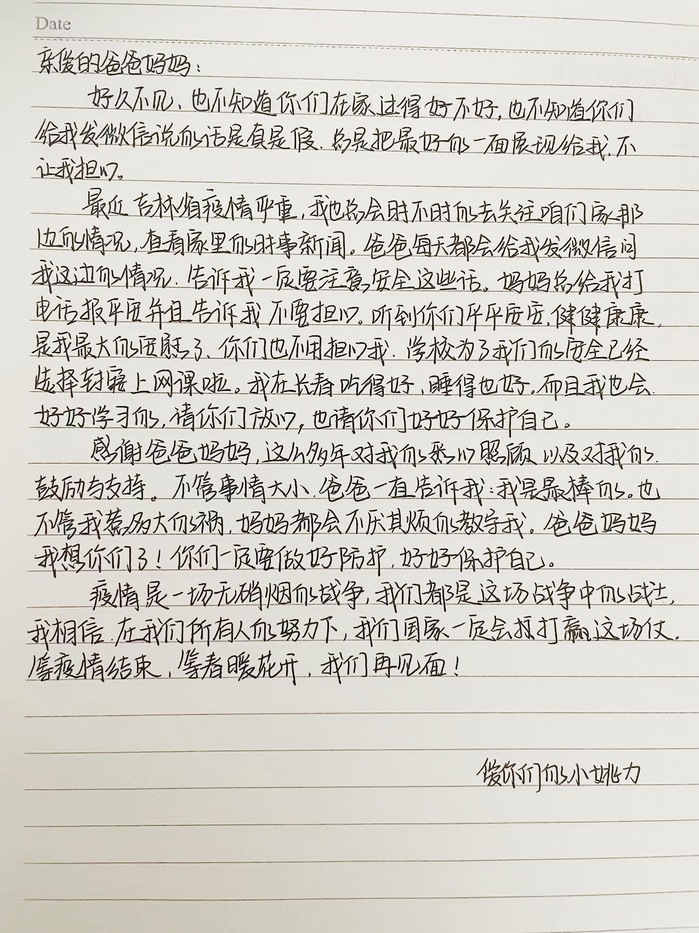 Date
亲爱的爸爸妈妈：
好久不见，也不知道你们在家过得好不好，也不知道你们
给我发微信说的话是真是假，总是把最好的一面展现给我，不
让我担心。
最近吉林省疫情严重，我也总会时不时的去关注咱们家那
边的情况，查看家里的时事新闻。爸爸每天都会给我发微信问
我这边的情况，告诉我一定要注意安全这些话。妈妈总给我打
电话报平安并且告诉我不要担心。听到你们平平安安，健健康康，
是我最大的安慰了，你们也不用担心我，学校为了我们的安全已经
选择封寝上网课啦。我在长春吃得好，睡得也好，而且我也会
好好学习的，请你们放心，也请你们好好保护自己。
感谢爸爸妈妈，这么多年对我的悉心照顾以及对我的
鼓励与支持。不管事情大小，爸爸一直告诉我：我是最棒的。也
不管我惹多大的祸，妈妈都会不厌其烦的教导我。爸爸妈妈
我想你们了！你们一定要做好防护，好好保护自己。
疫情是一场无硝烟的战争，我们都是这场战争中的战士，
我相信，在我们所有人的努力下，我们国家一定会打赢这场仗。
等疫情结束，等春暖花开，我们再见面！
爱你们的小姚力